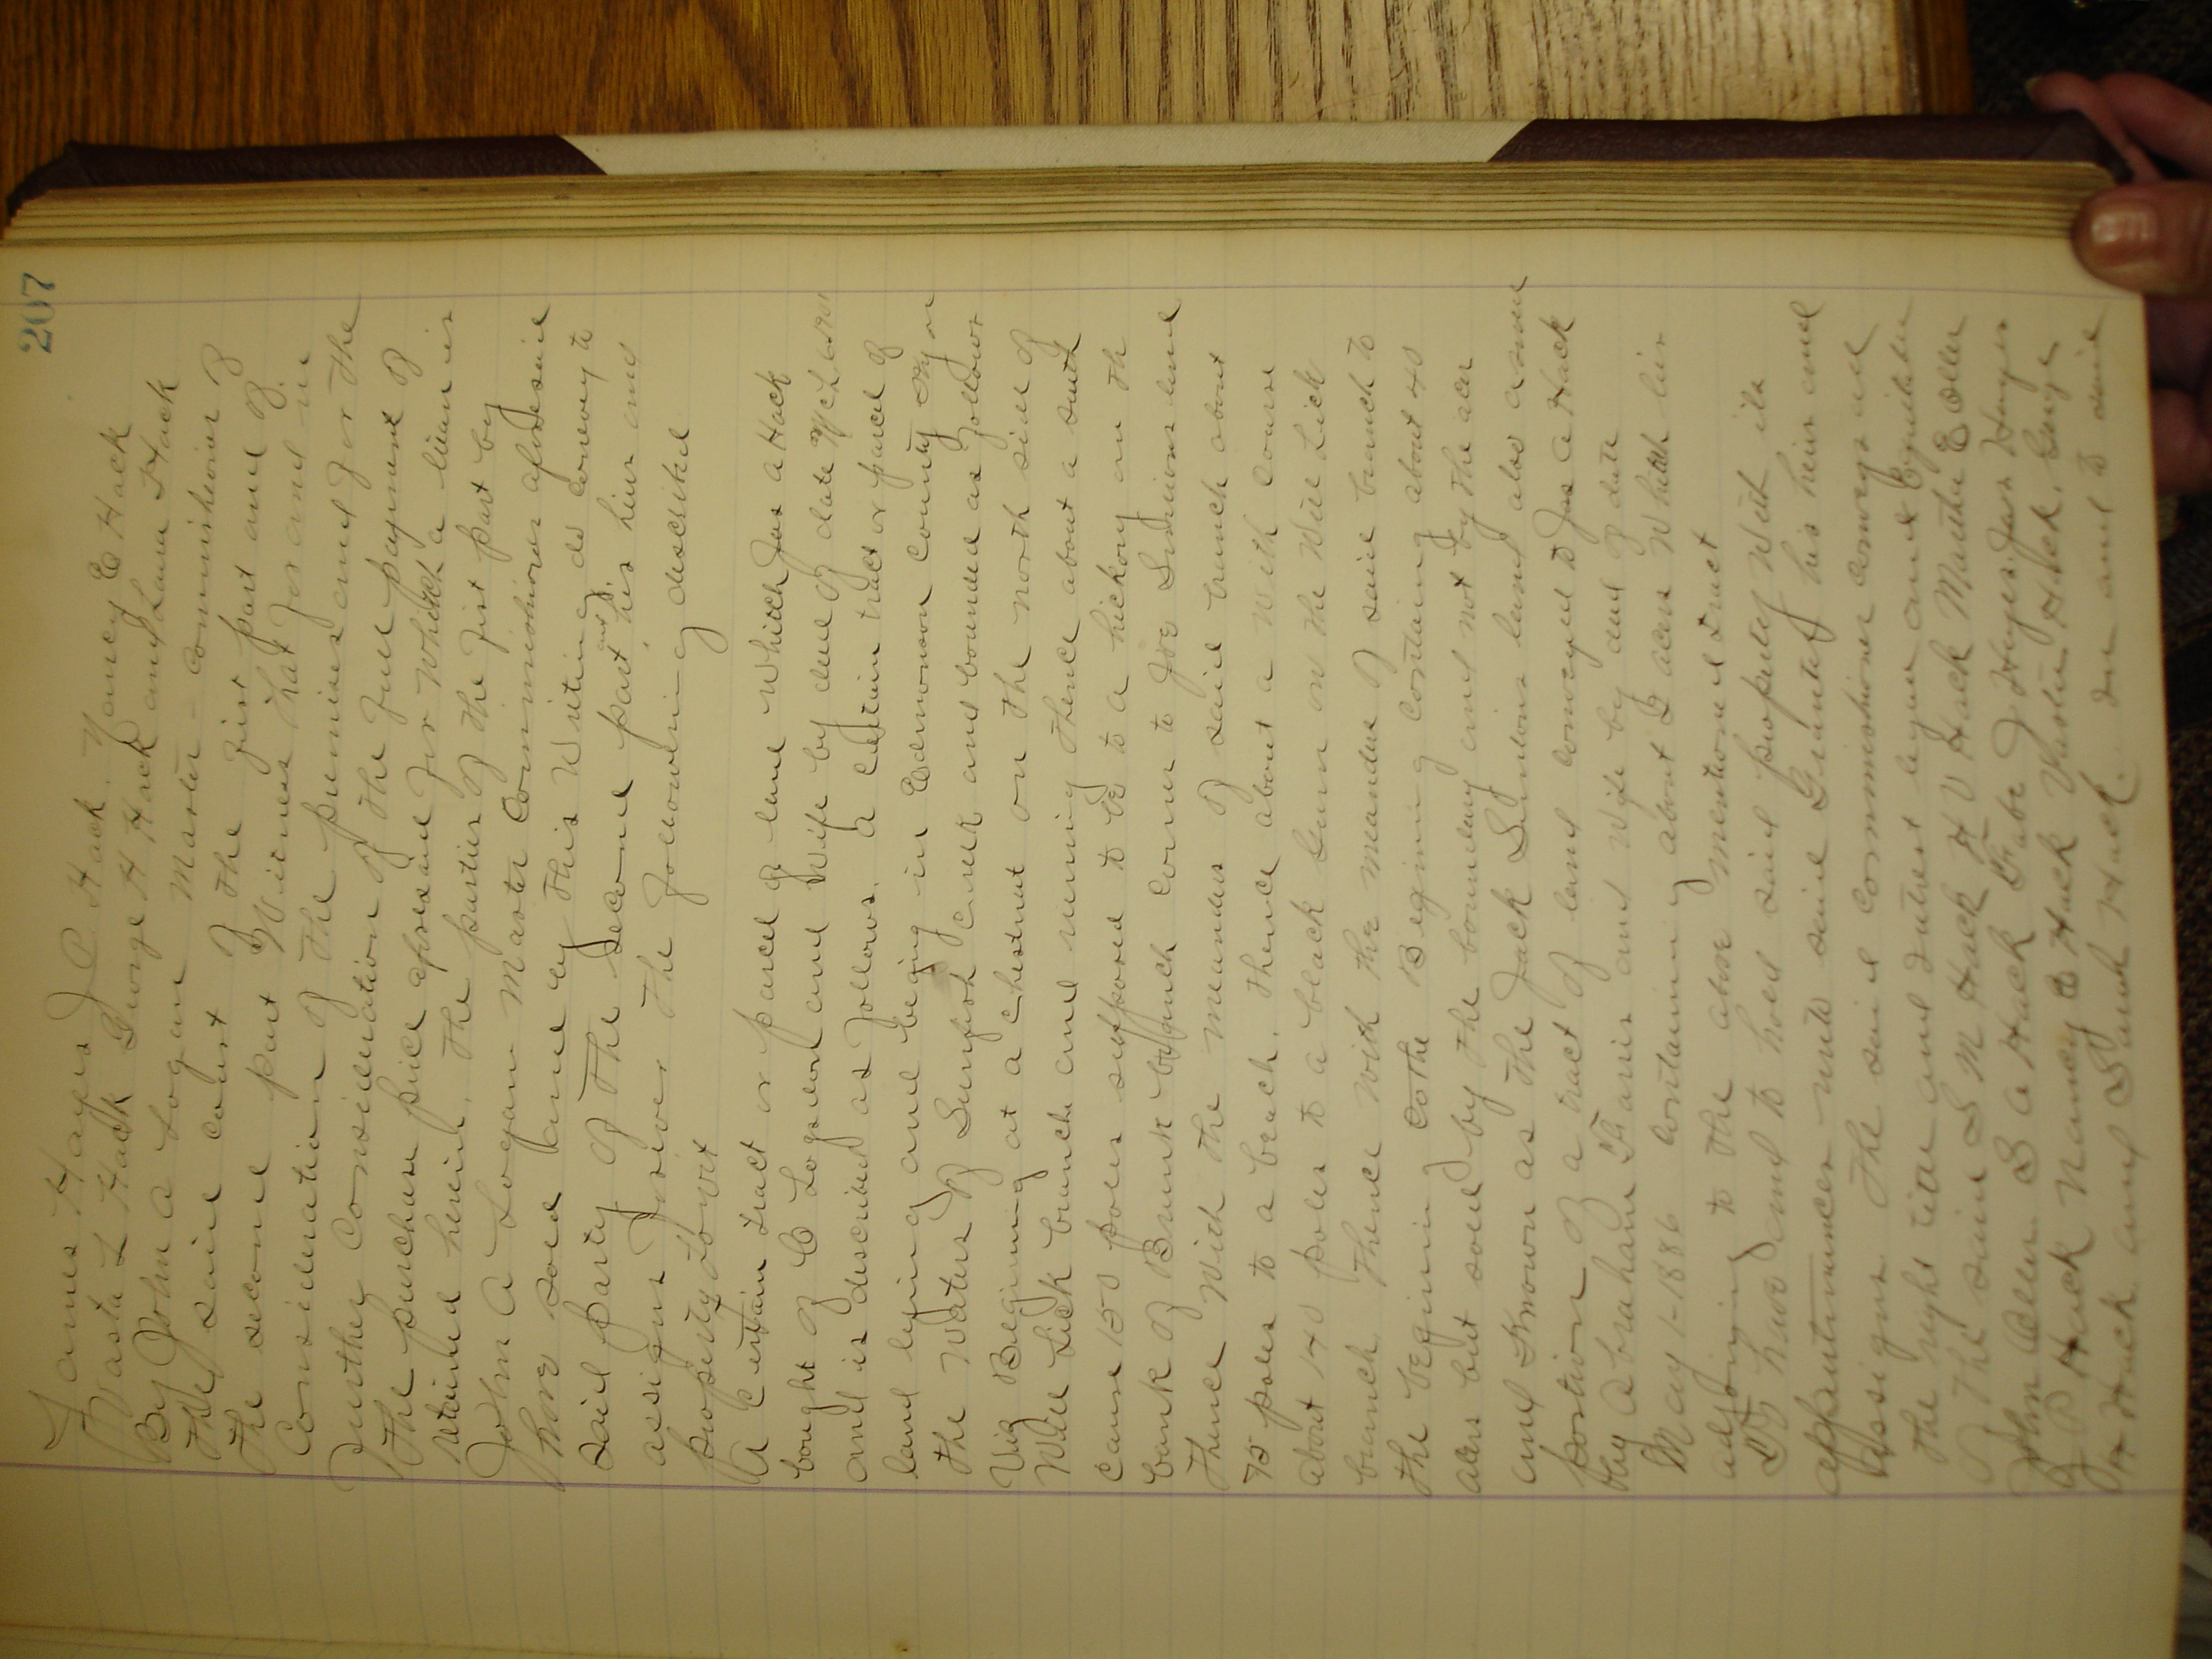 207
James Hayes J P Hack. Nancy E Hack
Wasta L Hack George H Hack and Laura Hack
By John A Logan Master-Commishioner of
the said court of the first part and B.
the second part Witness that for and in
Consideration of the premises and for the
further Consideration of the full payment of
the purchase price aforesaid for which a lien is
retained herein. The parties of the first part by
John A Logan Master Commishioner aforesaid
have sold and by this Writing do convey to
said party of the second part, and his heirs and
assigns forever the following described
property to wit
A certain tract or parcel of land which Jas A Hack
bought of C Logsdon and Wife by deed of date
and is described as follows. A certain tract or parcel of
land lying and being in Edmonson County Ky on
the Waters of Sunfish Creek and bounded as follows
Viz Begining at a chestnut on the north side of
Will Lick branch and running thence about a south
Course 150 poles supposed to be to a hickory on the
bank of Brunk branch corner to Joe Simions land
thence With the meanders of said branch about
75 poles to a beach. thence about a With Course
about 140 poles to a black Gum on the Will Lick
branch thence With the meander of said branch to
the begining to the Begining containing about 40
acers but sold by the boundary and not by the acer
and Known as the Jack Simions land also a
portion of a tract of land conveyed to Jas A Hack
by Abraham and Wife by deed of date
May 1-1886 containing about acers Which lies
adjoying to the above mentioned tract
To have and to hold said property With its
appurtinances unto said Grantee his heirs and
assigns. The said Commishioner conveys all
the right title and intrest legal and Equitable
of the said S M Hack H V Hack Mattie E Oller
John Oller S A Hack Fabe J Hayes Jas Hayes
J P Hack Nancy E Hack Hack, George
H Hack and Hack. In and to said